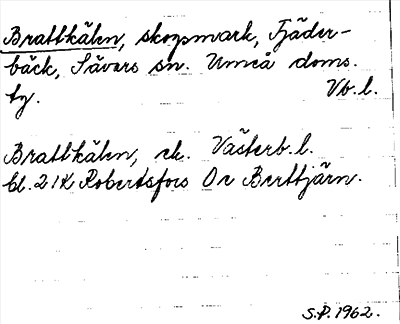 Brattkälen, skogsmark, Fjäder-
bäck, Sävars sn. Umeå doms.
tg. Vb.l.
Brattkälen, ek. Västerb.l.
bl. 21K Robertsfors Ov Berttjärn.
S.P. 1962.